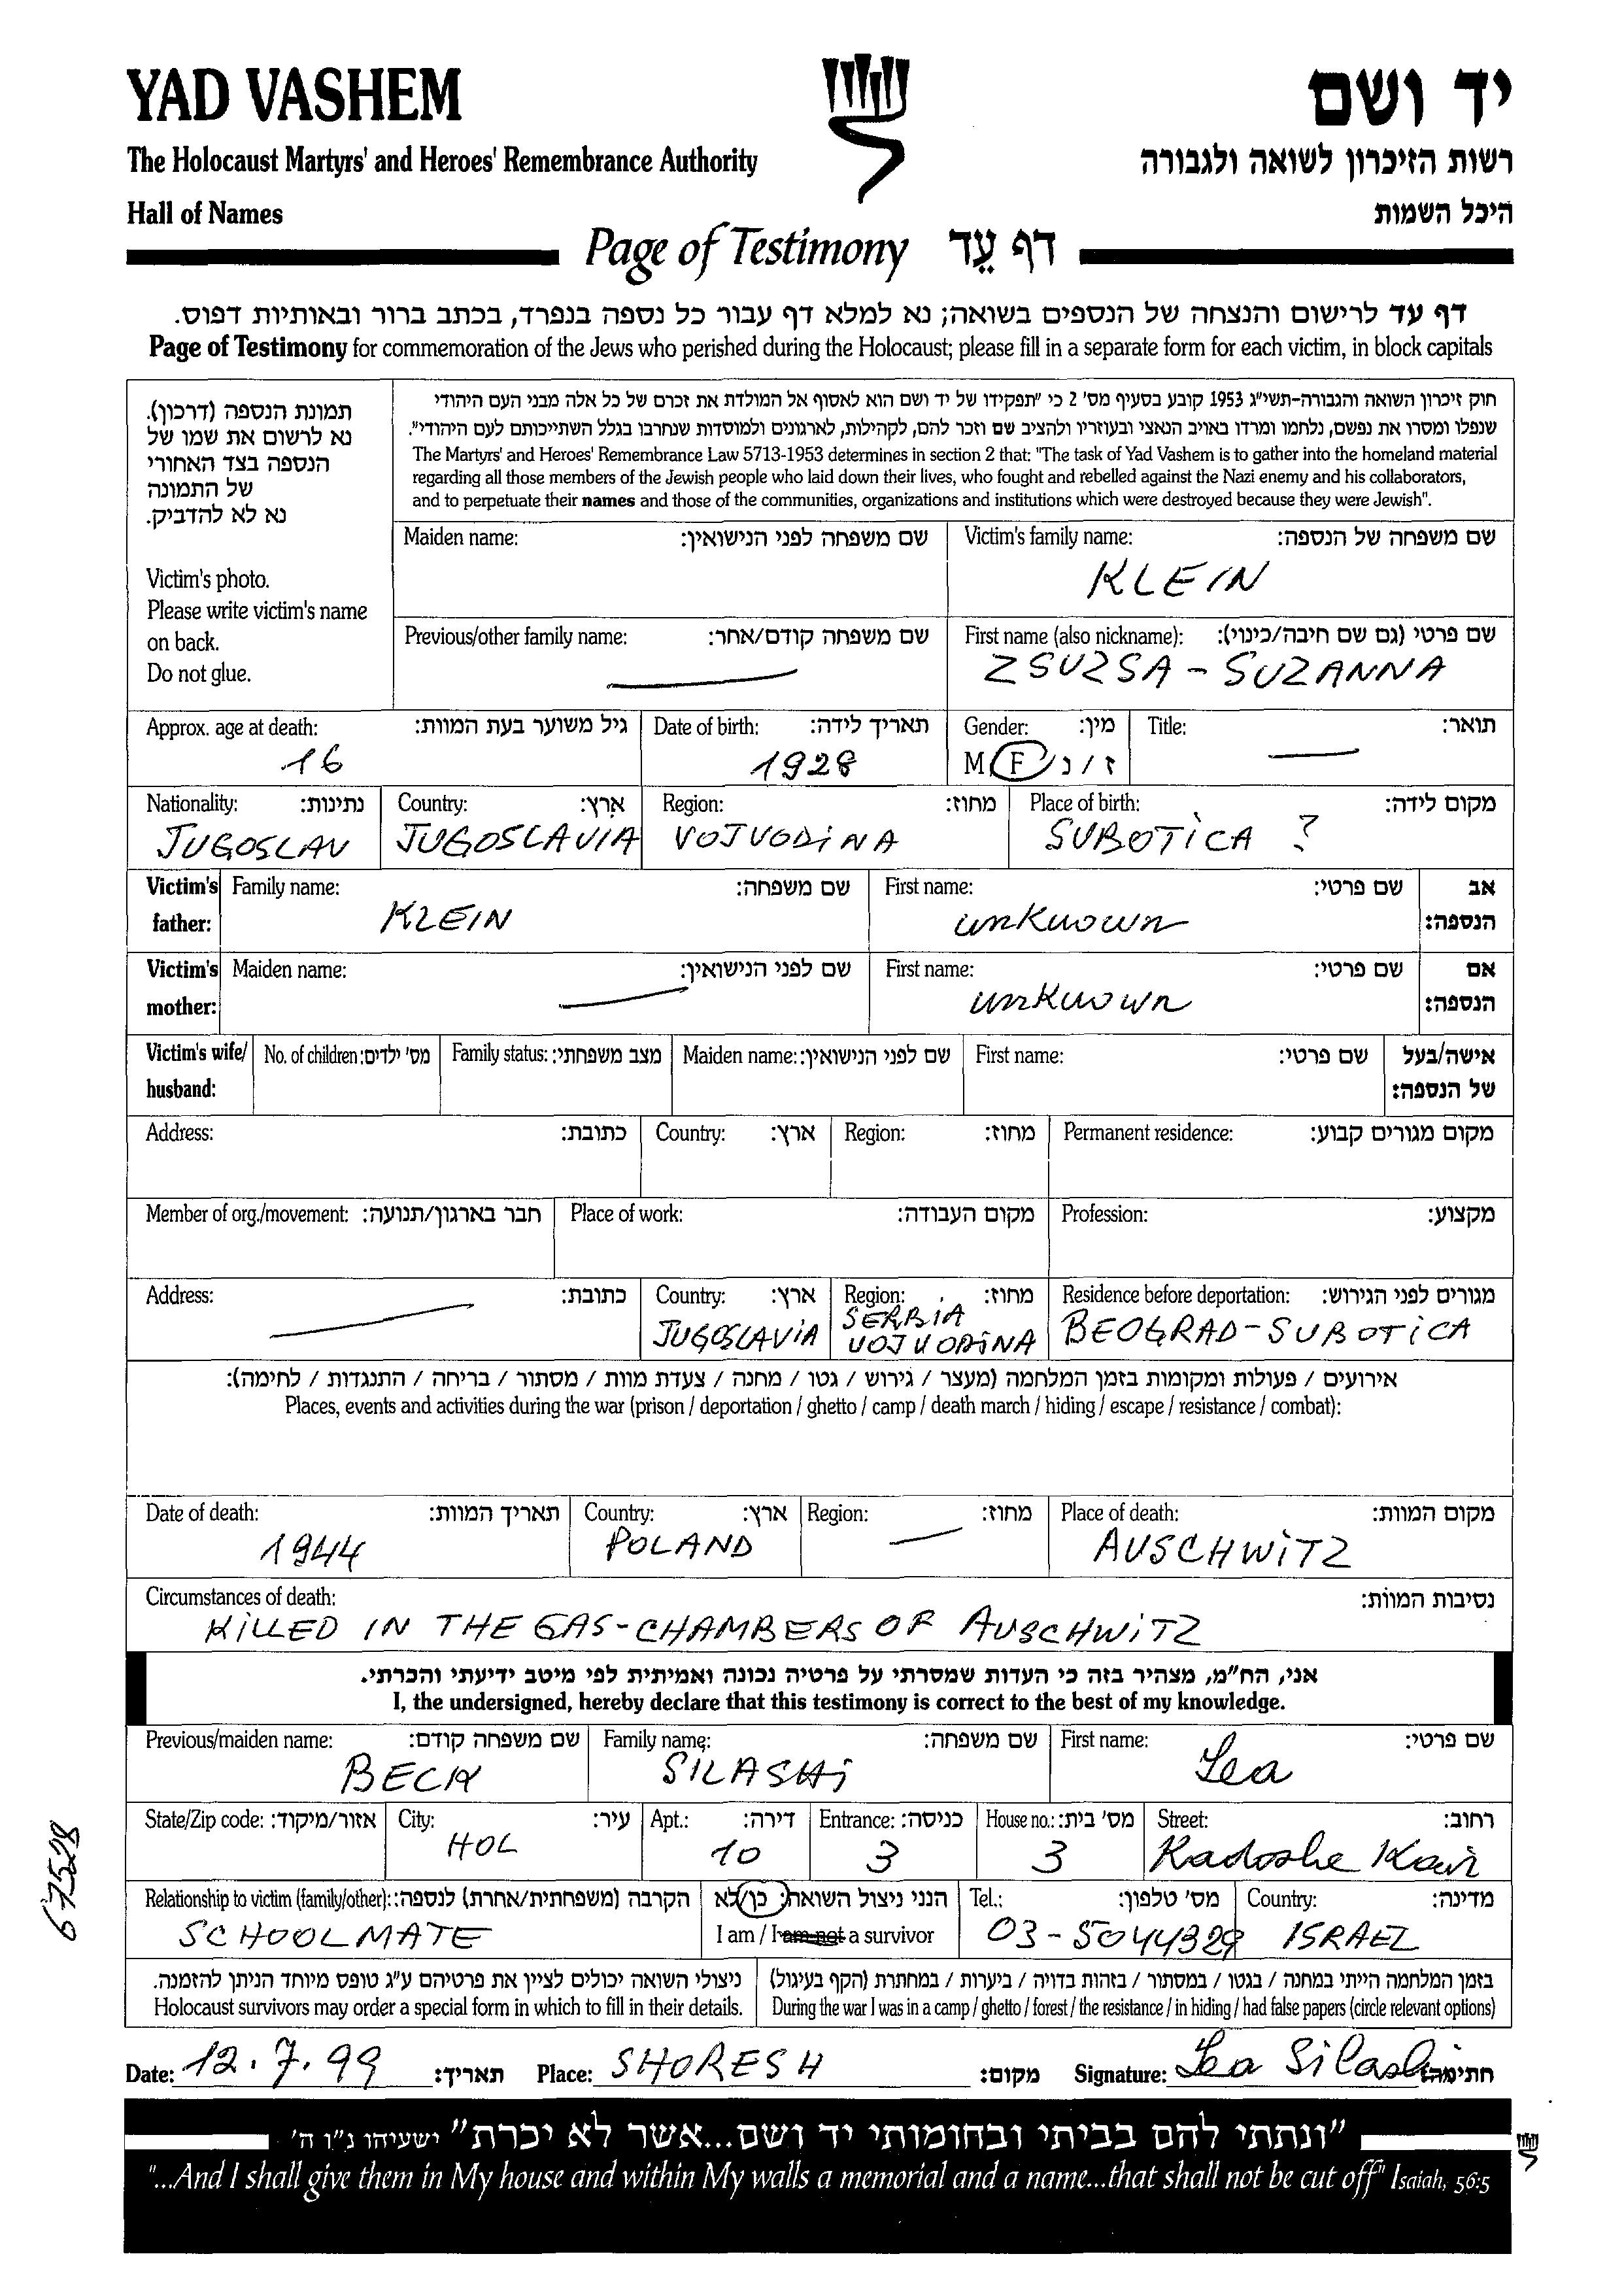 YAD VASHEM
יד ושם
The Holocaust Martyrs' and Heroes' Remembrance Authority
רשות הזיכרון לשואה ולגבורה
Hall of Names
היכל השמות
Page of Testimony דף עֵד
דף עד לרישום והנצחה של הנספים בשואה; נא למלא דף עבור כל נספה בנפרד, בכתב ברור ובאותיות דפוס.
Page of Testimony for commemoration of the Jews who perished during the Holocaust; please fill in a separate form for each victim, in block capitals
תמונת הנספה (דרכון).
נא לרשום את שמו של
הנספה בצד האחורי
של התמונה
נא לא להדביק.
Victim's photo.
Please write victim's name
on back.
Do not glue.
חוק זיכרון השואה והגבורה-תשי"ג 1953 קובע בסעיף מס' 2 כי "תפקידו של יד ושם הוא לאסוף אל המולדת את זכרם של כל אלה מבני העם היהודי
שנפלו ומסרו את נפשם, נלחמו ומרדו באויב הנאצי ובעוזריו ולהציב שם וזכר להם, לקהילות, לארגונים ולמוסדות שנחרבו בגלל השתייכותם לעם היהודי".
The Martyrs' and Heroes' Remembrance Law 5713-1953 determines in section 2 that: "The task of Yad Vashem is to gather into the homeland material
regarding all those members of the Jewish people who laid down their lives, who fought and rebelled against the Nazi enemy and his collaborators,
and to perpetuate their names and those of the communities, organizations and institutions which were destroyed because they were Jewish".
Maiden name: שם משפחה לפני הנישואין:
Victim's family name: שם משפחה של הנספה:
KLEIN
Previous/other family name: שם משפחה קודם/אחר:
First name (also nickname): שם פרטי (גם שם חיבה/כינוי):
ZSUZSA - SUZANNA
Approx. age at death: גיל משוער בעת המוות:
16
Date of birth: תאריך לידה:
1928
Gender: מין:
M F ז / נ
Title: תואר:
Nationality: נתינות:
JUGOSLAV
Country: ארץ:
JUGOSLAVIA
Region: מחוז:
VOJVODINA
Place of birth: מקום לידה:
SUBOTICA ?
Victim's father:
Family name: שם משפחה:
KLEIN
First name: שם פרטי:
unknown
אב הנספה:
Victim's mother:
Maiden name: שם לפני הנישואין:
First name: שם פרטי:
unknown
אם הנספה:
Victim's wife/ husband:
No. of children: מס' ילדים:
Family status: מצב משפחתי:
Maiden name: שם לפני הנישואין:
First name: שם פרטי:
אישה/בעל של הנספה:
Address: כתובת:
Country: ארץ:
Region: מחוז:
Permanent residence: מקום מגורים קבוע:
Member of org./movement: חבר בארגון/תנועה:
Place of work: מקום העבודה:
Profession: מקצוע:
Address: כתובת:
Country: ארץ:
JUGOSLAVIA
Region: מחוז:
SERBIA
VOJVODINA
Residence before deportation: מגורים לפני הגירוש:
BEOGRAD - SUBOTICA
אירועים / פעולות ומקומות בזמן המלחמה (מעצר / גירוש / גטו / מחנה / צעדת מוות / מסתור / בריחה / התנגדות / לחימה):
Places, events and activities during the war (prison / deportation / ghetto / camp / death march / hiding / escape / resistance / combat):
Date of death: תאריך המוות:
1944
Country: ארץ:
POLAND
Region: מחוז:
Place of death: מקום המוות:
AUSCHWITZ
Circumstances of death: נסיבות המוות:
KILLED IN THE GAS-CHAMBERS OF AUSCHWITZ
אני, הח"מ, מצהיר בזה כי העדות שמסרתי על פרטיה נכונה ואמיתית לפי מיטב ידיעתי והכרתי.
I, the undersigned, hereby declare that this testimony is correct to the best of my knowledge.
Previous/maiden name: שם משפחה קודם:
BECK
Family name: שם משפחה:
SILASHI
First name: שם פרטי:
Lea
State/Zip code: אזור/מיקוד:
City: עיר:
HOL
Apt.: דירה:
10
Entrance: כניסה:
3
House no.: מס' בית:
3
Street: רחוב:
Kadoshe Kair
Relationship to victim (family/other): הקרבה (משפחתית/אחרת) לנספה:
SCHOOLMATE
הנני ניצול השואה: כן/לא
I am / I am not a survivor
Tel.: מס' טלפון:
03-5044329
Country: מדינה:
ISRAEL
ניצולי השואה יכולים לציין את פרטיהם ע"ג טופס מיוחד הניתן להזמנה.
Holocaust survivors may order a special form in which to fill in their details.
בזמן המלחמה הייתי במחנה / בגטו / במסתור / בזהות בדויה / ביערות / במחתרת (הקף בעיגול)
During the war I was in a camp / ghetto / forest / the resistance / in hiding / had false papers (circle relevant options)
Date: 12.7.99 תאריך:
Place: SHORESH מקום:
Signature: Lea Silashi חתימה:
"ונתתי להם בביתי ובחומותי יד ושם...אשר לא יכרת" ישעיהו נ"ו ה'
"...And I shall give them in My house and within My walls a memorial and a name...that shall not be cut off" Isaiah, 56:5
67528